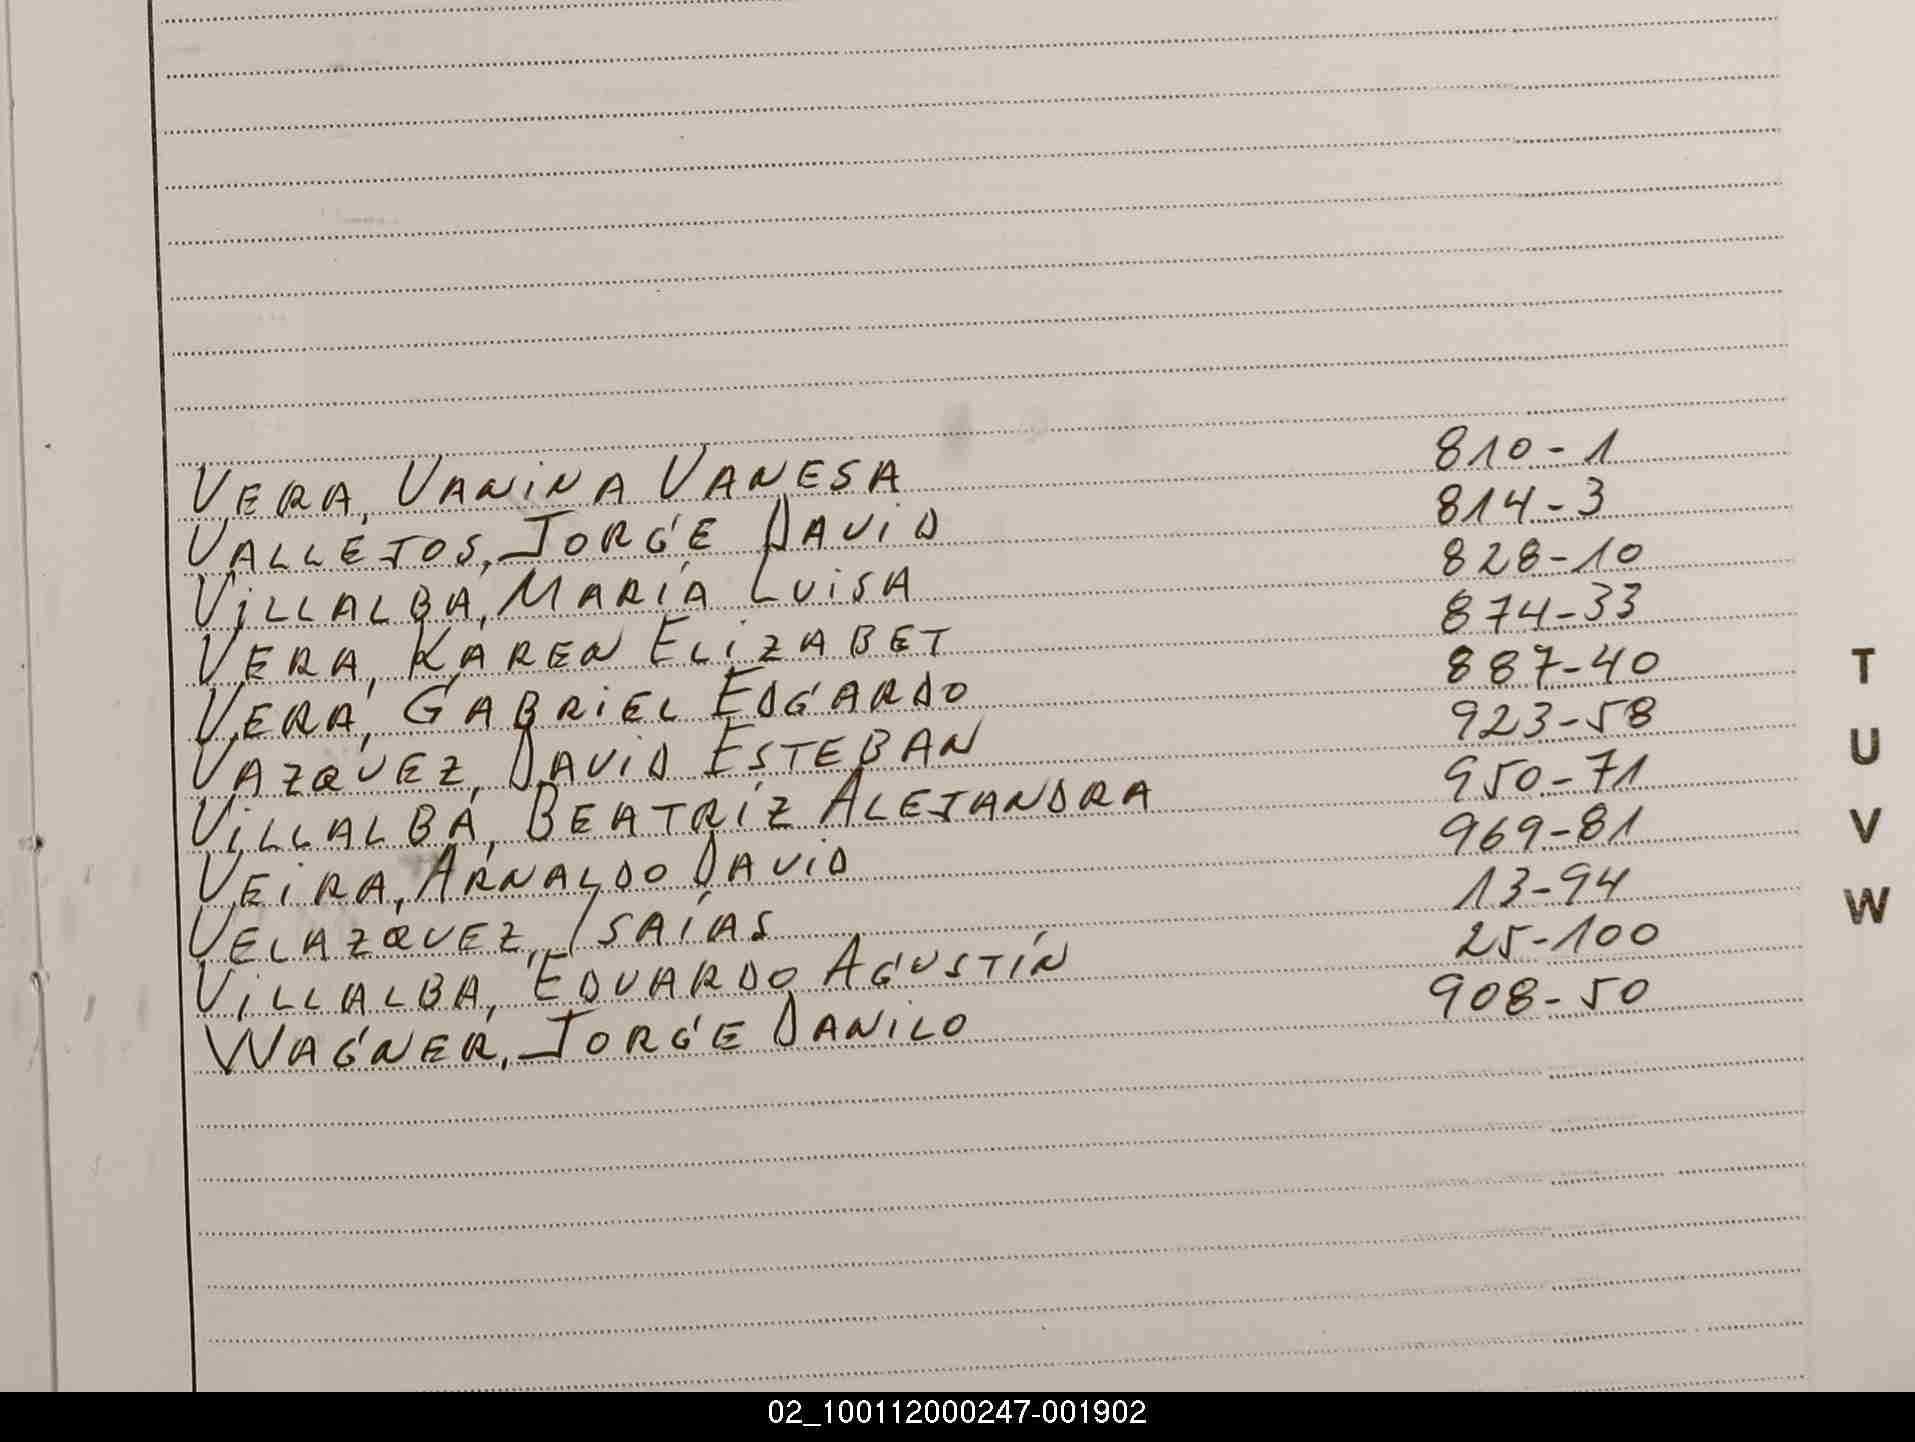 VERA, VANINA VANESA 810-1
VALLEJOS, JORGE DAVID 814-3
VILLALBA, MARÍA LUISA 828-10
VERA, KAREN ELIZABET 874-33
VERA, GABRIEL EDGARDO 887-40
VAZQUEZ, DAVID ESTEBAN 923-58
VILLALBA, BEATRÍZ ALEJANDRA 950-71
VEIRA, ARNALDO DAVID 969-81
VELAZQUEZ, ISAÍAS 13-94
VILLALBA, EDUARDO AGUSTÍN 25-100
WAGNER, JORGE DANILO 908-50
T
U
V
W
02_100112000247-001902